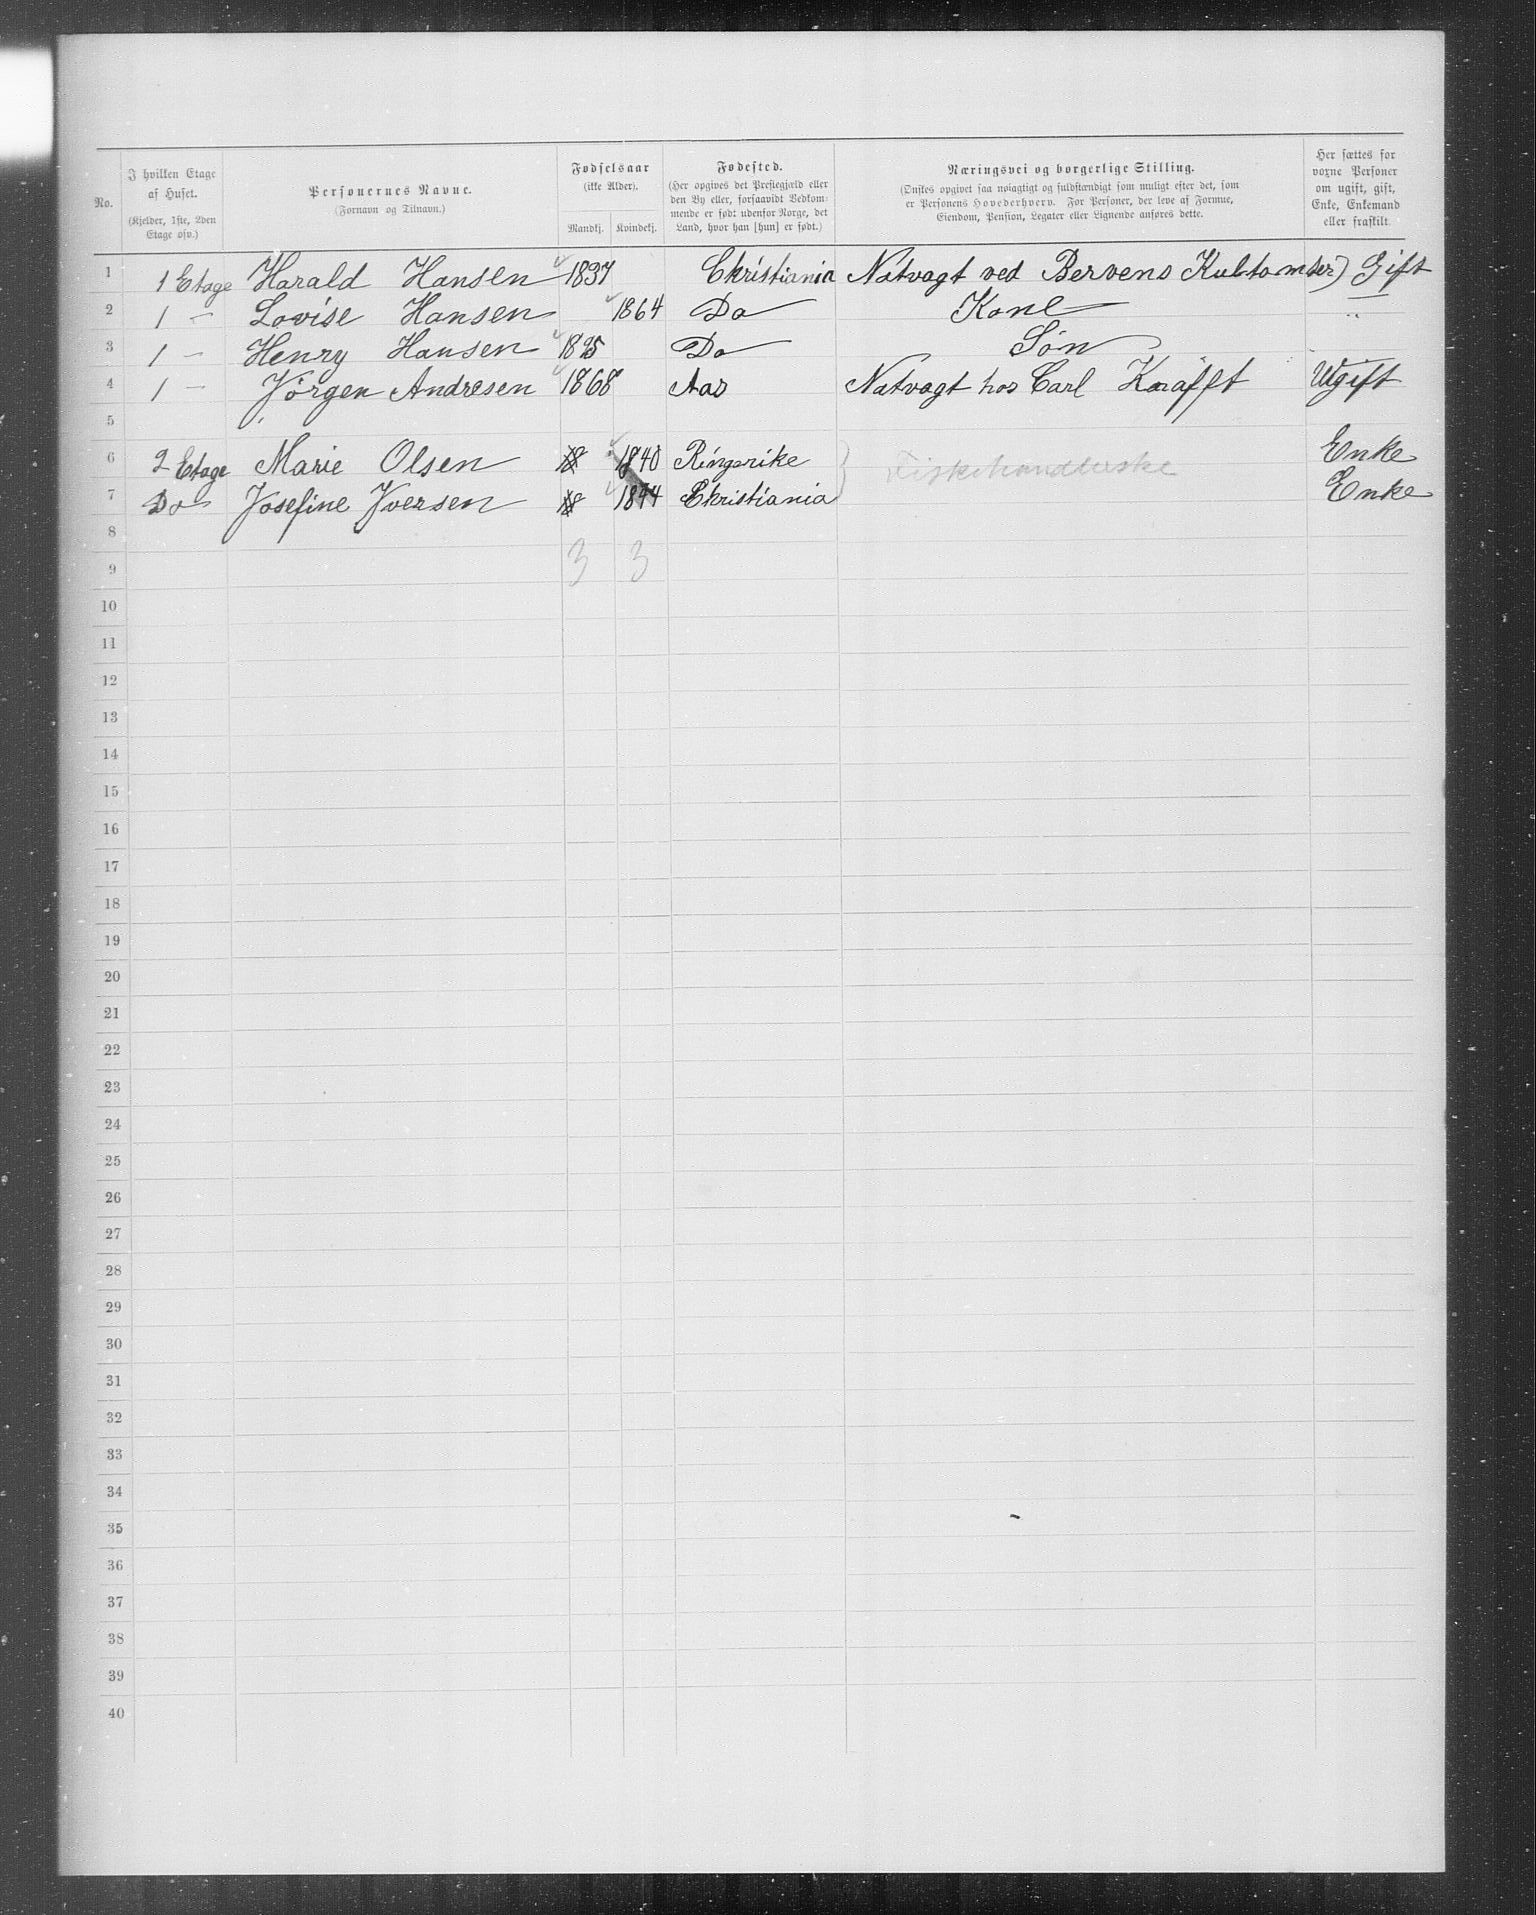 No.
I hvilken Etage af Huset. (Kjelder, 1ste, 2den Etage osv.)
Personernes Navne. (Fornavn og Tilnavn.)
Fødselsaar (ikke Alder). Mandkj. Kvindekj.
Fødested. (Her opgives det Prestegjæld eller den By eller, forsaavidt Vedkommende er født udenfor Norge, det Land, hvor han [hun] er født.)
Næringsvei og borgerlige Stilling. (Ønskes opgivet saa nøiagtigt og fuldstændigt som muligt efter det, som er Personens Hovederhverv. For Personer, der leve af Formue, Eiendom, Pension, Legater eller Lignende anføres dette.
Her sættes for voxne Personer om ugift, gift, Enke, Enkemand eller fraskilt.
1 1 Etage Harald Hansen 1837 Christiania Natvagt ved Bervens Kultomter) Gift
2 1 — Lovise Hansen 1864 Do Kone — "
3 1 — Henry Hansen 1895 Do Søn —
4 1 — Jörgen Andresen 1868 Aas Natvagt hos Carl Krafft Ugift
5
6 2 Etage Marie Olsen 18 1840 Ringerike } Fiskehandlerske Enke
7 Do Josefine Iversen 18 1844 Christiania Enke
8
9 3 3
10
11
12
13
14
15
16
17
18
19
20
21
22
23
24
25
26
27
28
29
30
31
32
33
34
35
36
37
38
39
40